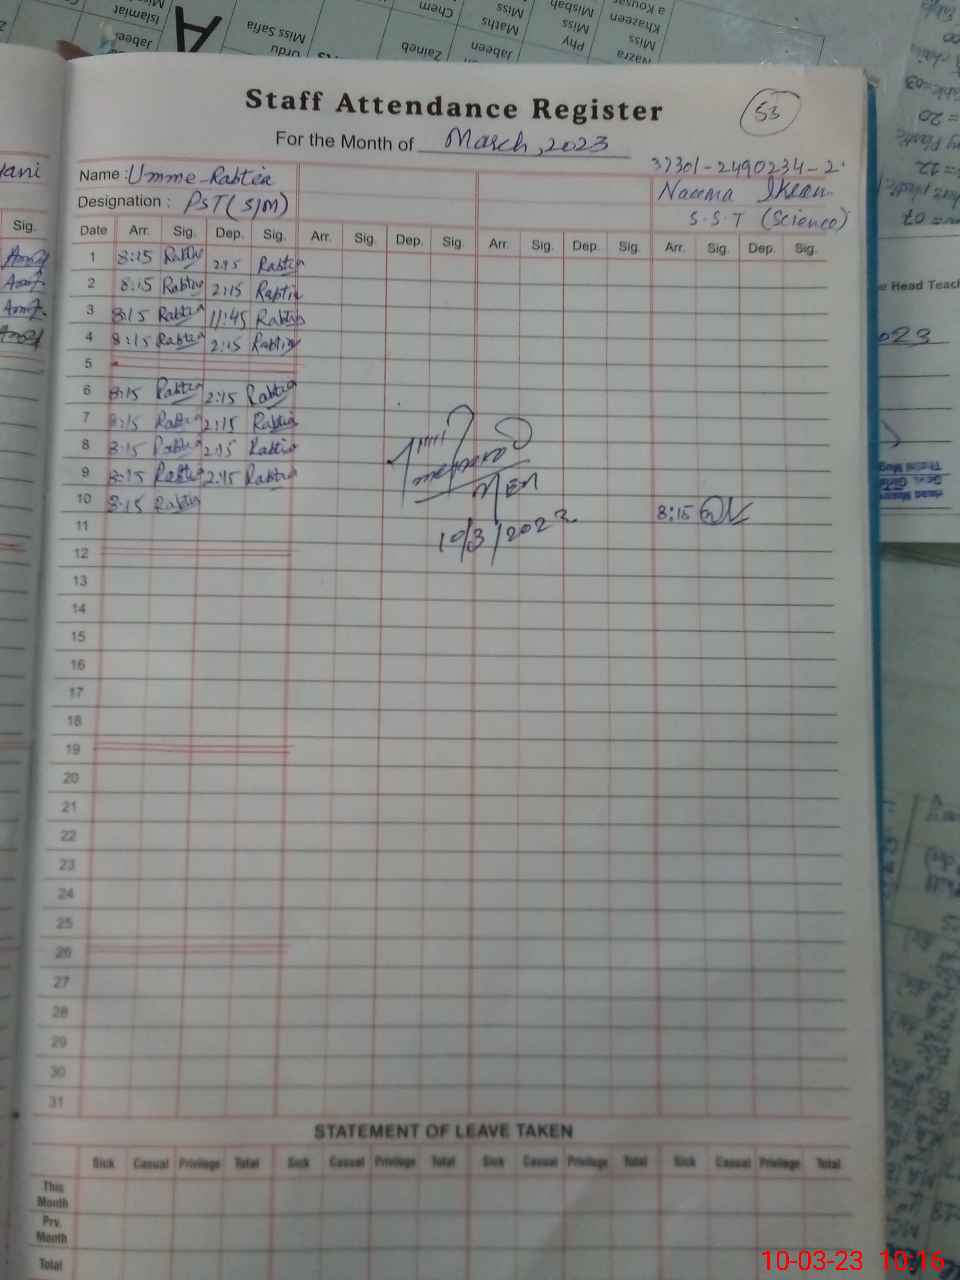 Staff Attendance Register
53
For the Month of March, 2023
37301-2490234-2
Name : Umme Rabtia
Naeema
Designation : PST (S/M)
S.S.T (Science)
Date Arr. Sig. Dep. Sig. Arr. Sig. Dep. Sig. Arr. Sig. Dep. Sig. Arr. Sig. Dep. Sig.
1 8:15 Rabtia 2:15 Rabtia
2 8:15 Rabtia 2:15 Rabtia
3 8:15 Rabtia 11:45 Rabtia
4 8:15 Rabtia 2:15 Rabtia
5
6 8:15 Rabtia 2:15 Rabtia
7 8:15 Rabtia 2:15 Rabtia
8 8:15 Rabtia 2:15 Rabtia
9 8:15 Rabtia 2:15 Rabtia
MEA
10 8:15 Rabtia 8:15
10/3/2023
11
12
13
14
15
16
17
18
19
20
21
22
23
24
25
26
27
28
29
30
31
STATEMENT OF LEAVE TAKEN
Sick Casual Privilege Total Sick Casual Privilege Total Sick Casual Privilege Total Sick Casual Privilege Total
This
Month
Prv.
Month
Total
Sig.
Miss Safia
Urdu
Zaineb
Chem
Jabeen
Maths
Miss
Phy
Miss
Misbah
Nazra
Miss
Khazeen
a Kousar
Islamiat
Jabee
A
= 20
= 12
= 07
e Head Teach
023
10-03-23 10:16